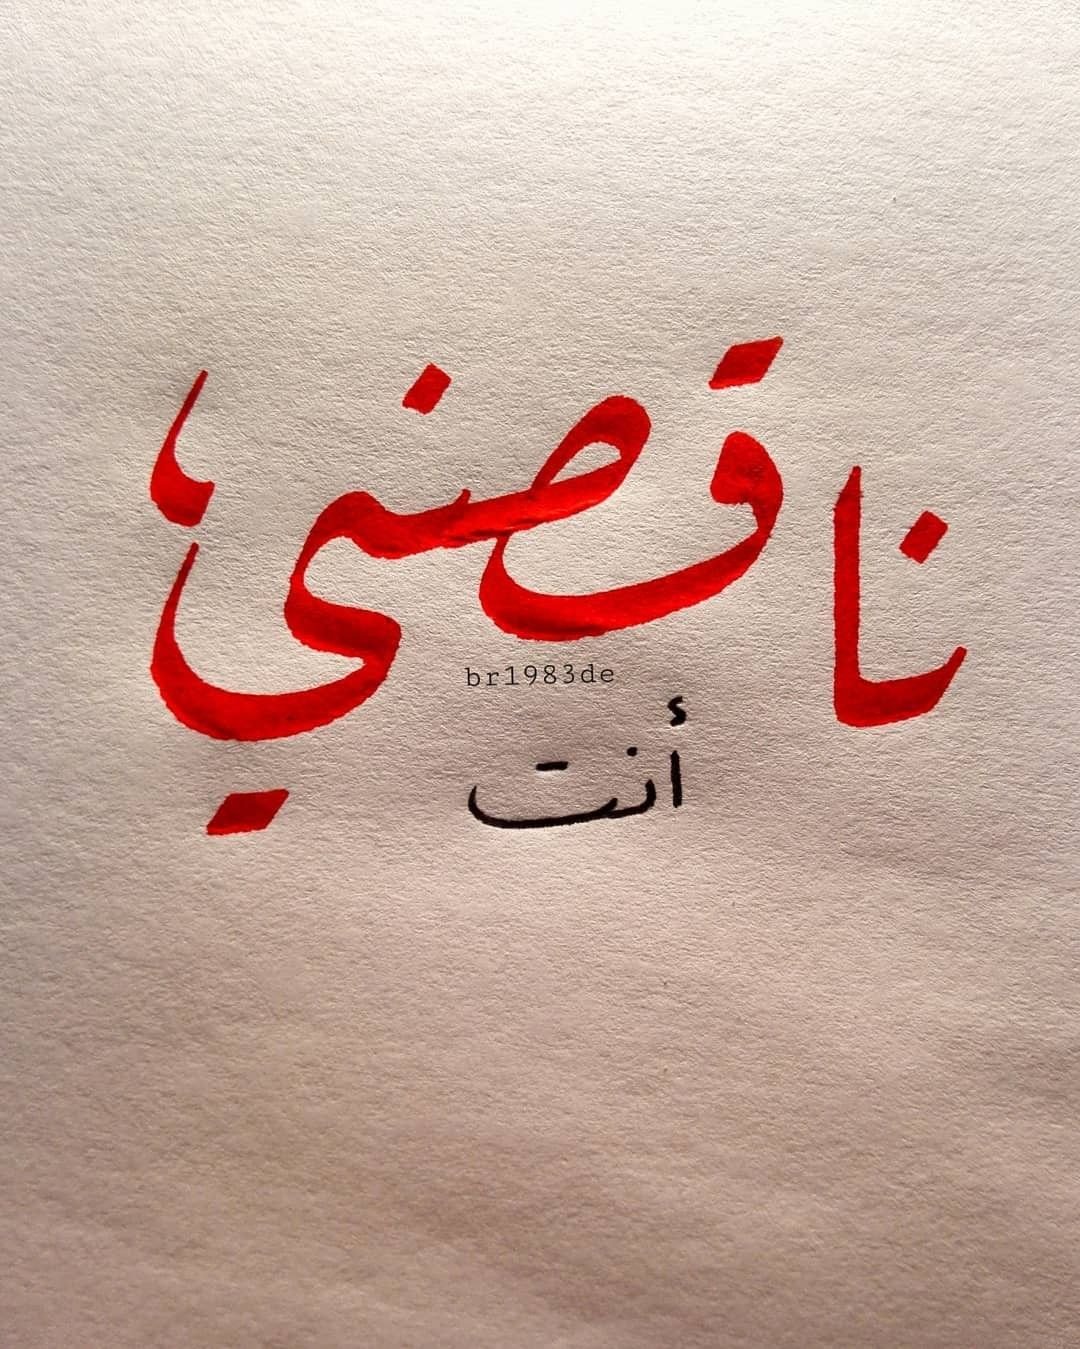 ناقصني،
br1983de
أنت